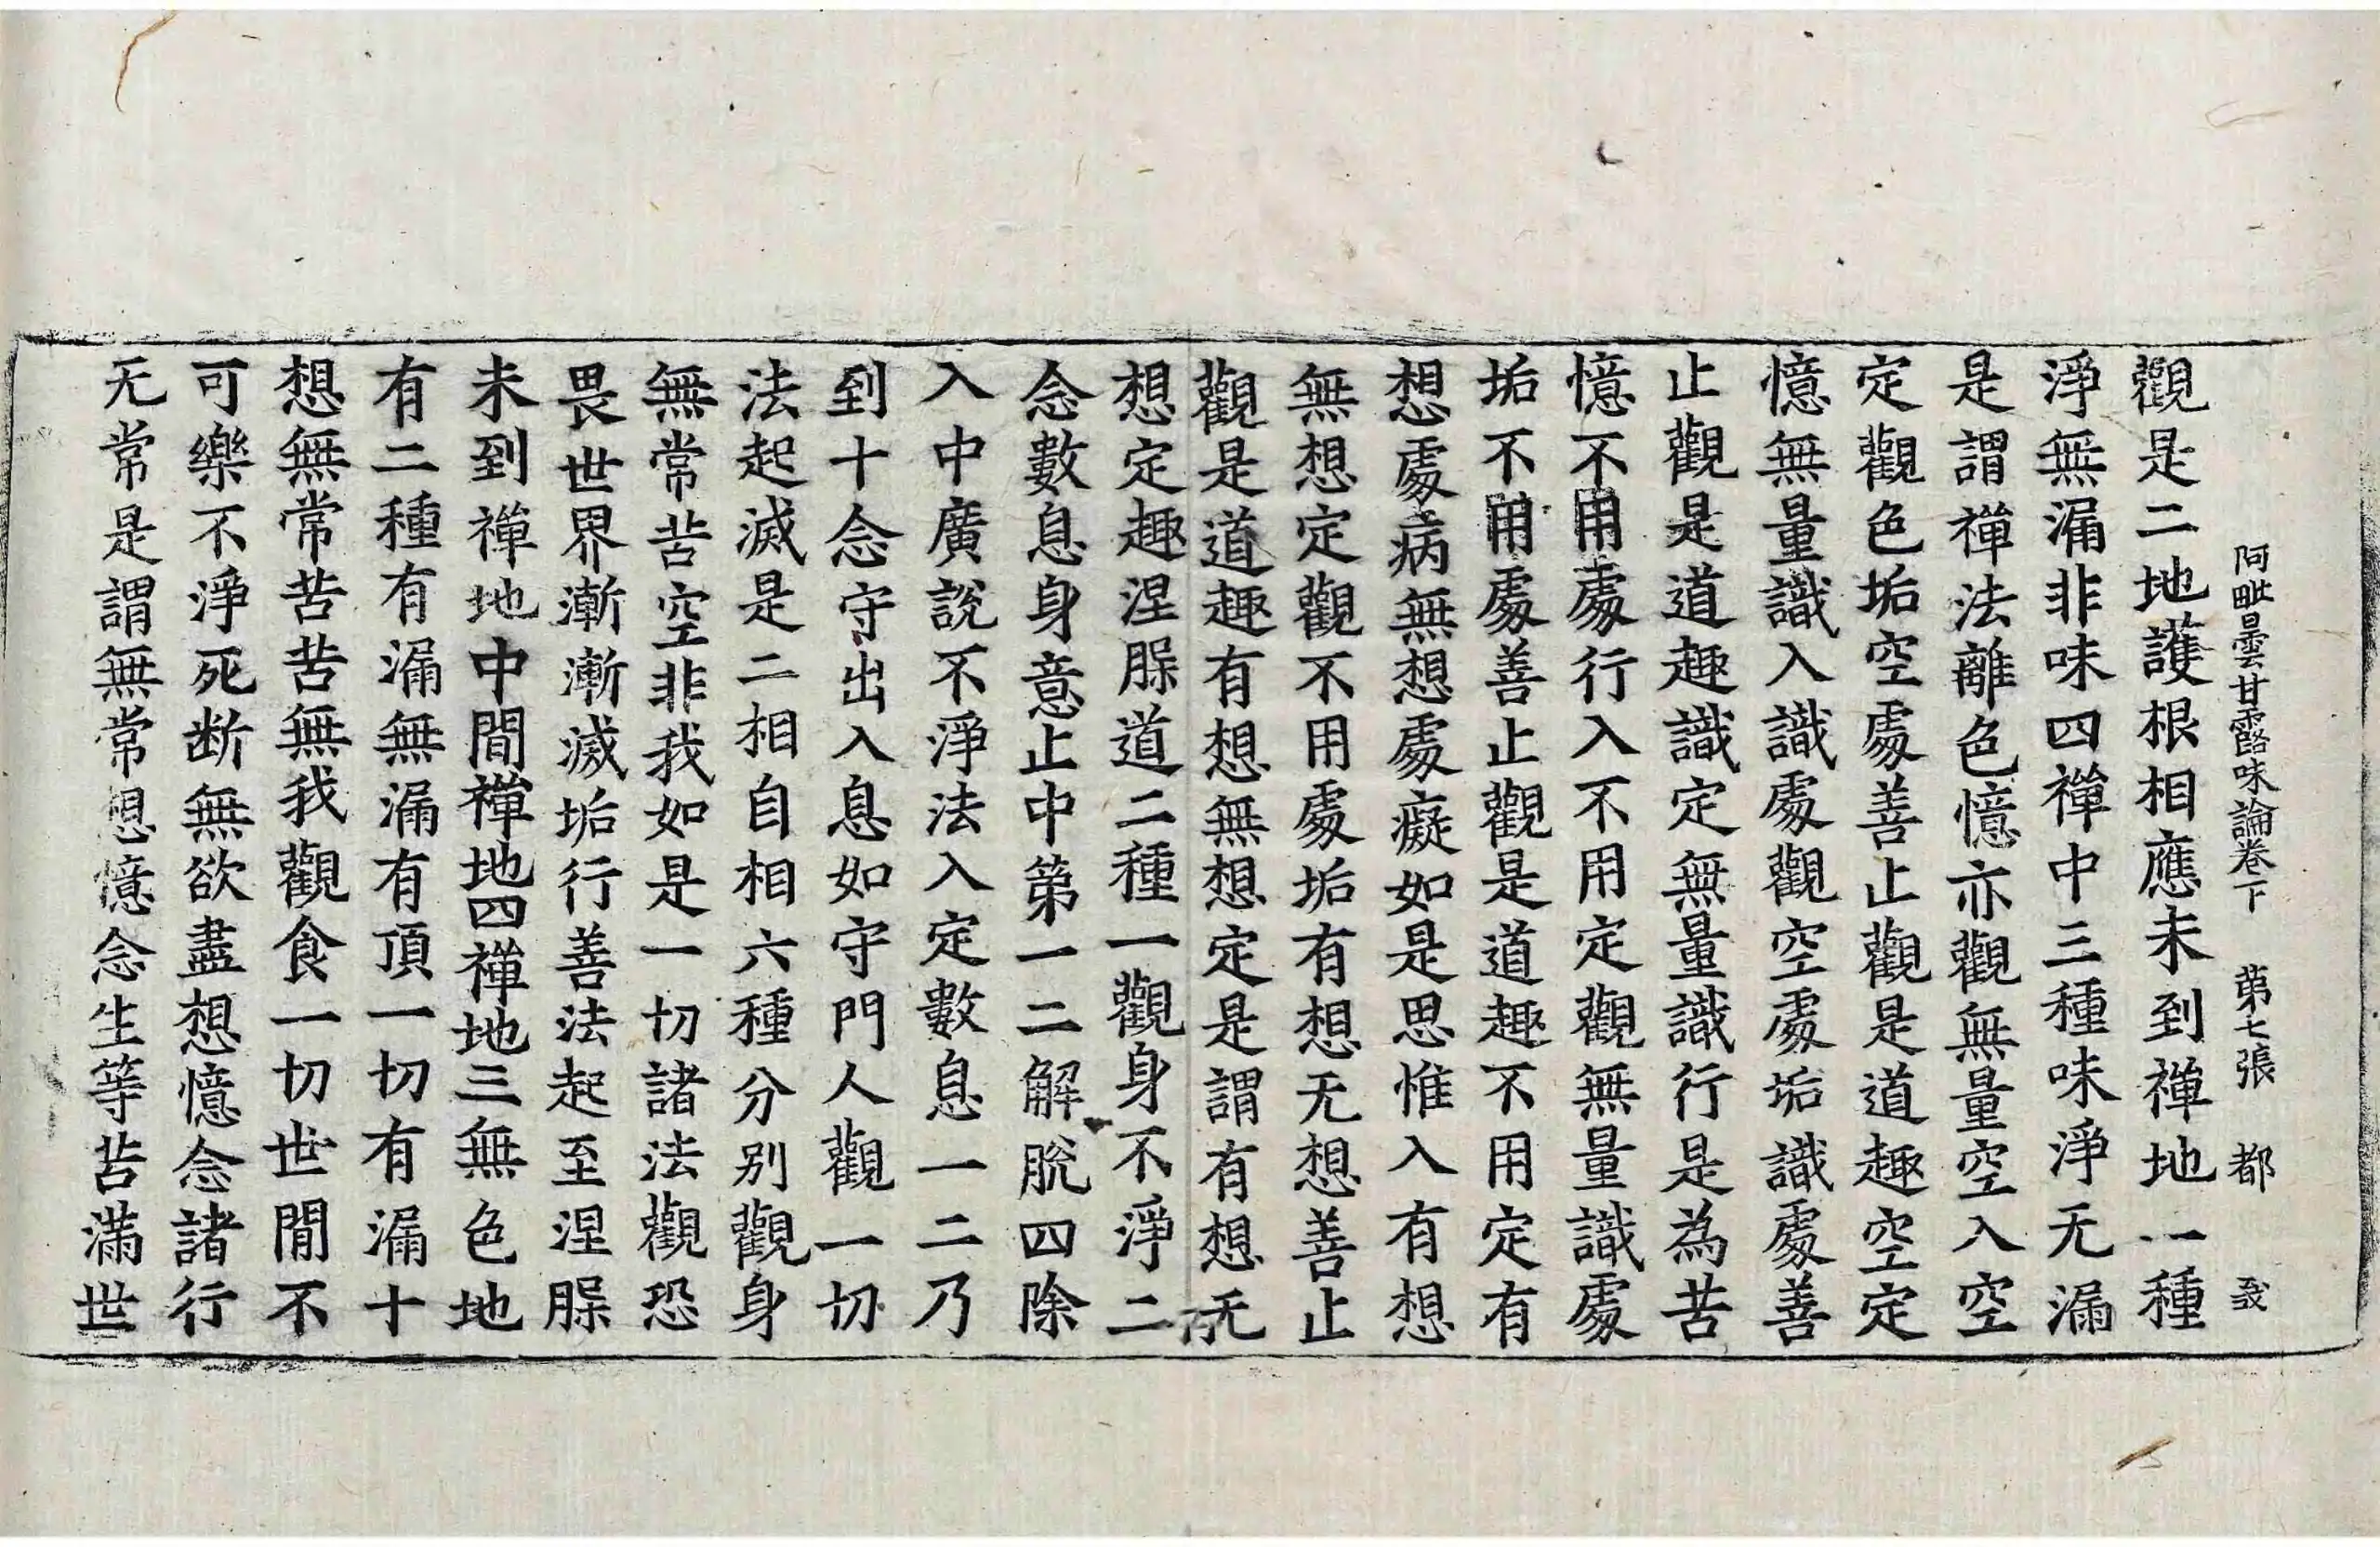 阿毗曇甘露味論卷下　第七張　都
觀是二地護根相應未到禪地一種
淨無漏非味四禪中三種味淨无漏
是謂禪法離色憶亦觀無量空入空
定觀色垢空處善止觀是道趣空定
憶無量識入識處觀空處垢識處善
止觀是道趣識定無量識行是為苦
憶不用處行入不用定觀無量識處
垢不用處善止觀是道趣不用定有
想處病無想處癡如是思惟入有想
無想定觀不用處垢有想无想善止
觀是道趣有想無想定是謂有想无
想定趣涅脲道二種一觀身不淨二
念數息身意止中第一二解脫四除
入中廣說不淨法入定數息一二乃
到十念守出入息如守門人觀一切
法起滅是二相自相六種分別觀身
無常苦空非我如是一切諸法觀恐
畏世界漸漸滅垢行善法起至涅脲
未到禪地中間禪地四禪地三無色地
有二種有漏無漏有頂一切有漏十
想無常苦苦無我觀食一切世間不
可樂不淨死断無欲盡想憶念諸行
无常是謂無常想憶念生等苦滿世